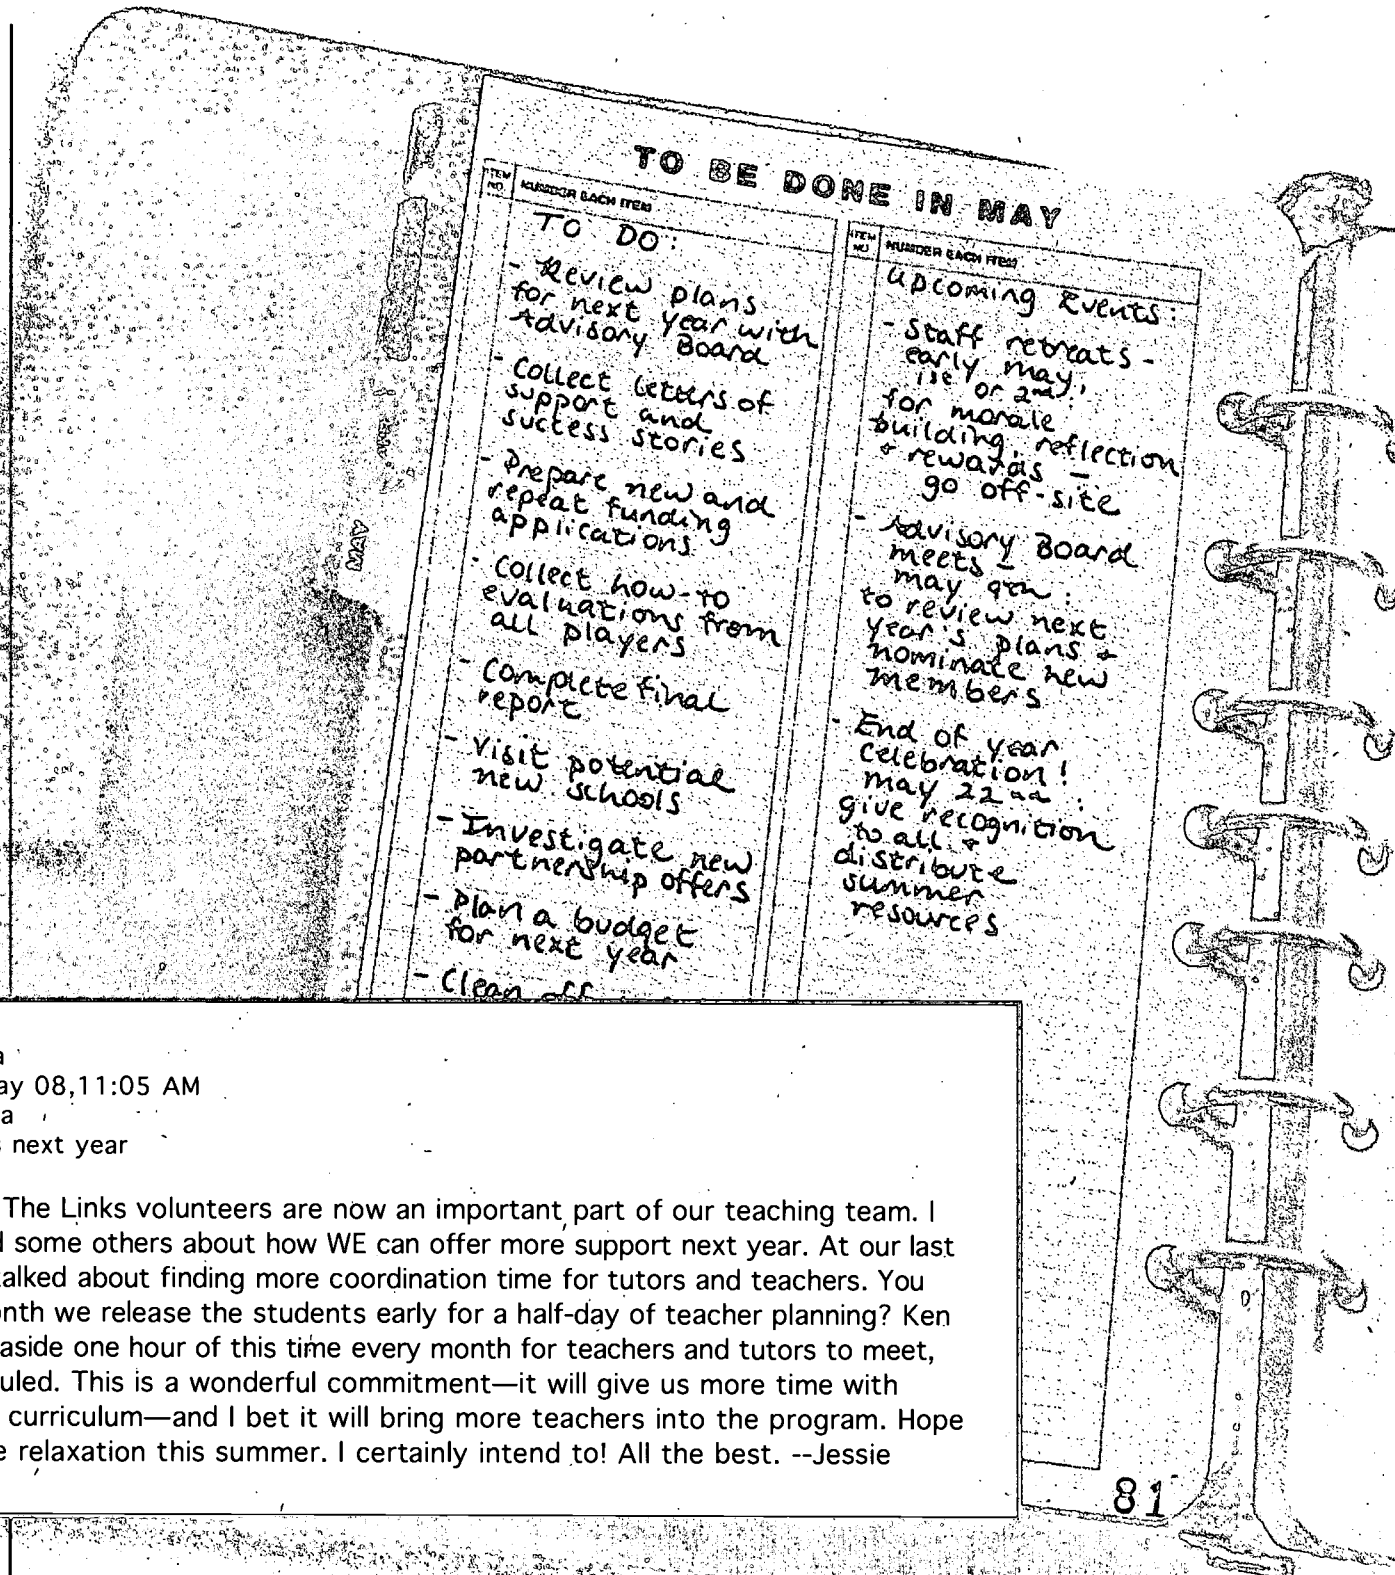 TO BE DONE IN MAY
ITEM NO.
NUMBER EACH ITEM
TO DO:
- Review plans
for next year with
Advisory Board
- Collect letters of
support and
success stories
- Prepare new and
repeat funding
applications
- Collect how-to
evaluations from
all players
- Complete final
report
- Visit potential
new schools
- Investigate new
partnership offers
- Plan a budget
for next year
- Clean off
ITEM NO.
NUMBER EACH ITEM
Upcoming Events:
- Staff retreats -
early may,
1st or 2nd:
for morale
building, reflection
& rewards -
go off-site
- Advisory Board
meets -
may 9th:
to review next
year's plans &
nominate new
members
- End of year
celebration!
may 22nd:
give recognition
to all &
distribute
summer
resources
MAY
a
ay 08,11:05 AM
a
s next year
The Links volunteers are now an important part of our teaching team. I
d some others about how WE can offer more support next year. At our last
talked about finding more coordination time for tutors and teachers. You
onth we release the students early for a half-day of teacher planning? Ken
aside one hour of this time every month for teachers and tutors to meet,
uled. This is a wonderful commitment—it will give us more time with
curriculum—and I bet it will bring more teachers into the program. Hope
e relaxation this summer. I certainly intend to! All the best. --Jessie
81